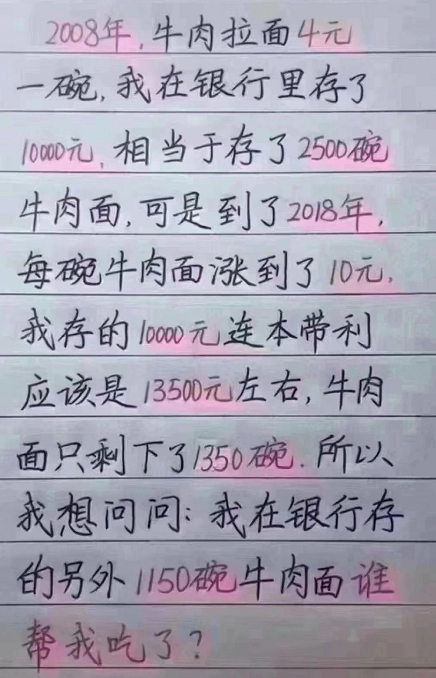 2008年,牛肉拉面4元
一碗,我在银行里存了
10000元,相当于存了2500碗
牛肉面,可是到了2018年,
每碗牛肉面涨到了10元.
我存的10000元连本带利
应该是13500元左右,牛肉
面只剩下了1350碗.所以
我想问问:我在银行存
的另外1150碗牛肉面谁
帮我吃了?